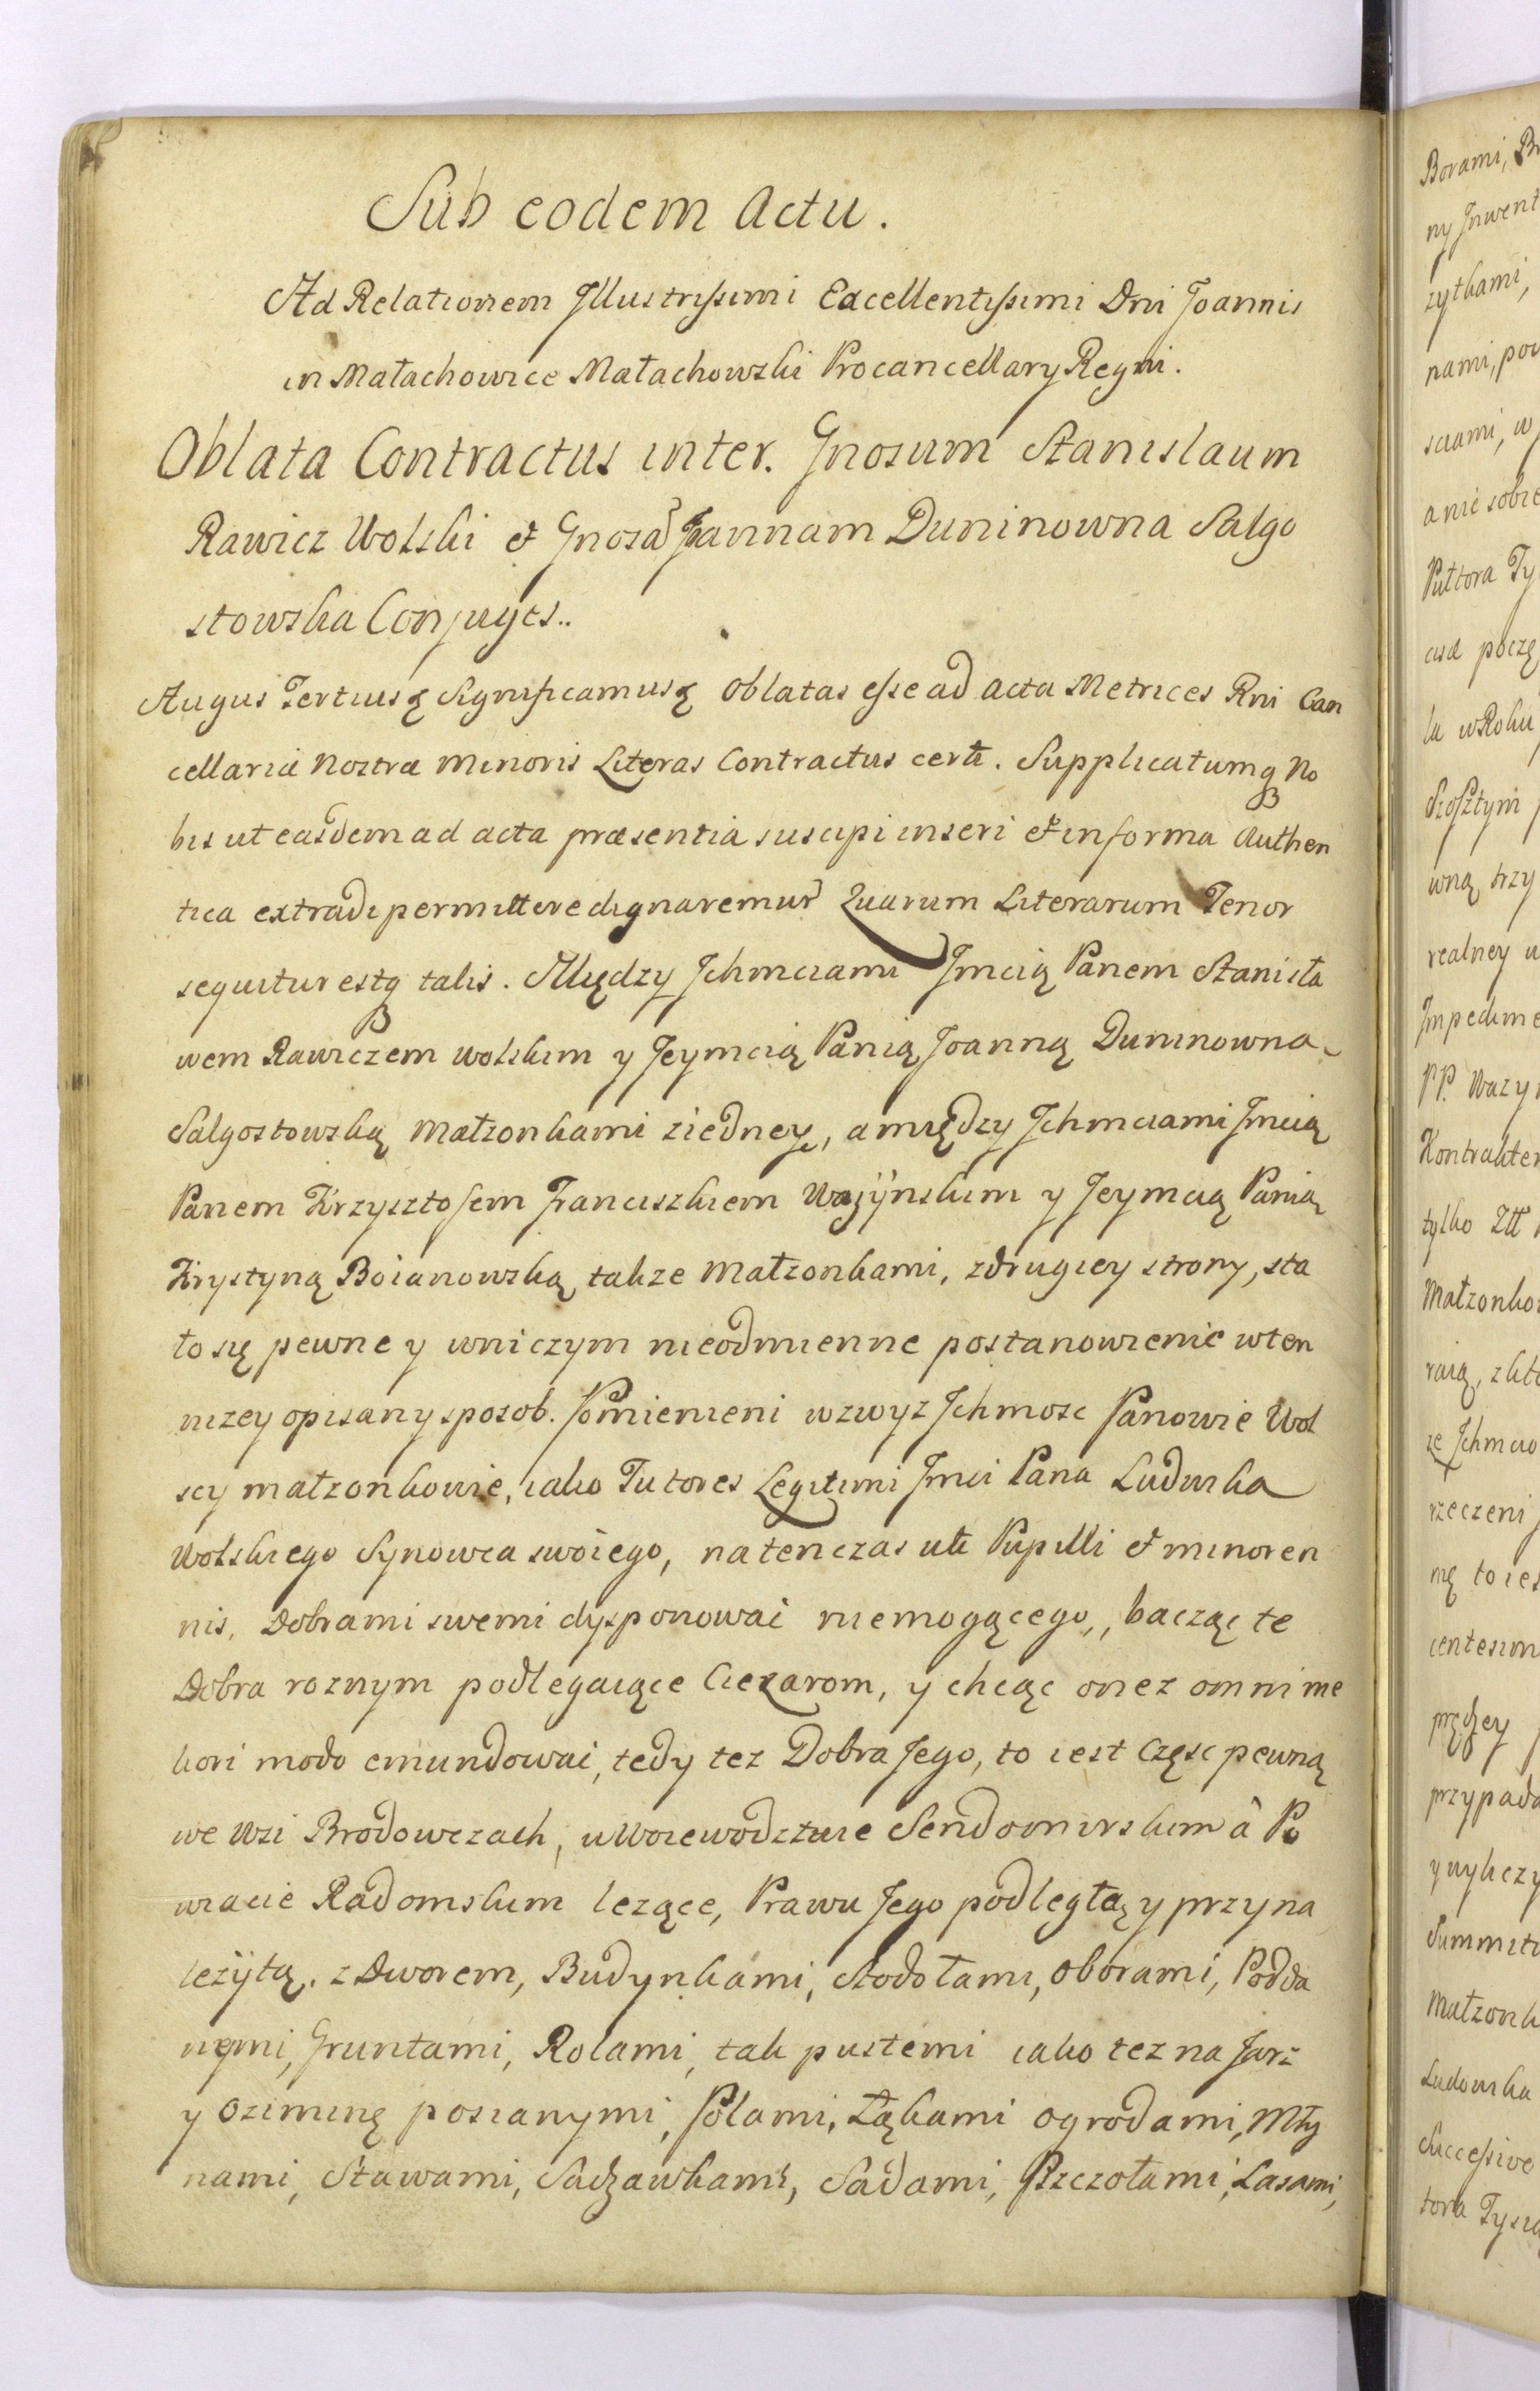 Sub eodem Actu.
Ad Relationem Jllustrissimi Excellentissimi Dni Joannis
in Małachowice Małachowski Procancellary Regni.
Oblata Contractus inter. Gnosum Stanislaum
Rawicz Wolski et Gnosa Joannam Duninowna Salgo
stowska Conjuges..
Augus Tertius Significamus Oblatas esse ad Acta Metrices Rni Can
cellariæ Nostræ Minoris Literas Contractus certi. Supplicatumq No
bis ut easdem ad acta præsentia suscipi inseri et in forma Authen
tica extradi permittere dignaremur Quarum Literarum Tenor
sequitur estq talis. Między Jchmciami Jmcią Panem Stanisła
wem Rawiczem Wolskim y Jeymcią Panią Joanną Duninowna
Salgostowską Małzonkami ziedney, a między Jchmciami Jmcią
Panem Krzysztofem Franciszkiem Ważÿnskim y Jeymcią Panią
Krystyną Boianowską takze Małzonkami, zdrugiey strony, sta
ło się pewne y wniczym nieodmienne postanowienie wten
nizey opisany sposob. Pomienieni wzwyz Jchmosc Panowie Wol
scy małzonkowie, iako Tutores Legitimi Jmci Pana Ludwika
Wolskiego Synowca swoiego, natenczas uti Pupilli et minoren
nis, Dobrami swemi dysponowac niemogącego,, bacząc te
Dobra roznym podlegaiące Ciezarom, y chcąc onez omni me
liori modo emundowac, tedy tez Dobra Jego, to iest Częsc pewną
we Wsi Brodowczach, w Woiewodztwie Sendomirskim â Po
wiacie Radomskim lezące, Prawu Jego podległą y przyna
leżÿtą. z Dworem, Budynkami, Stodołami, Oborami, Podda
nęmi, Gruntami, Rolami, tak pustemi iako tez na Jarż
y Oziminę posianymi, Polami, Łąkami Ogrodami, Mły
nami, Stawami, Sadzawkami, Sadami, Pszczołami, Lasami,
Borami,
ny Jnwent
zytkami,
nami, pow
sciami, w
a nic sobie
Pułtora Ty
cia poczę
la wRoku
Szosztym
wną trzy
realney
Jmpedime
PP. Wazy
Kontrakte
tylko Złł
Małzonko
raią, z kto
ze Jchmcio
rzeczeni
nę to ies
centesim
prędzey
przypada
y wylicz
Summito
Małzonk
Ludowika
Successive
tora Tysią